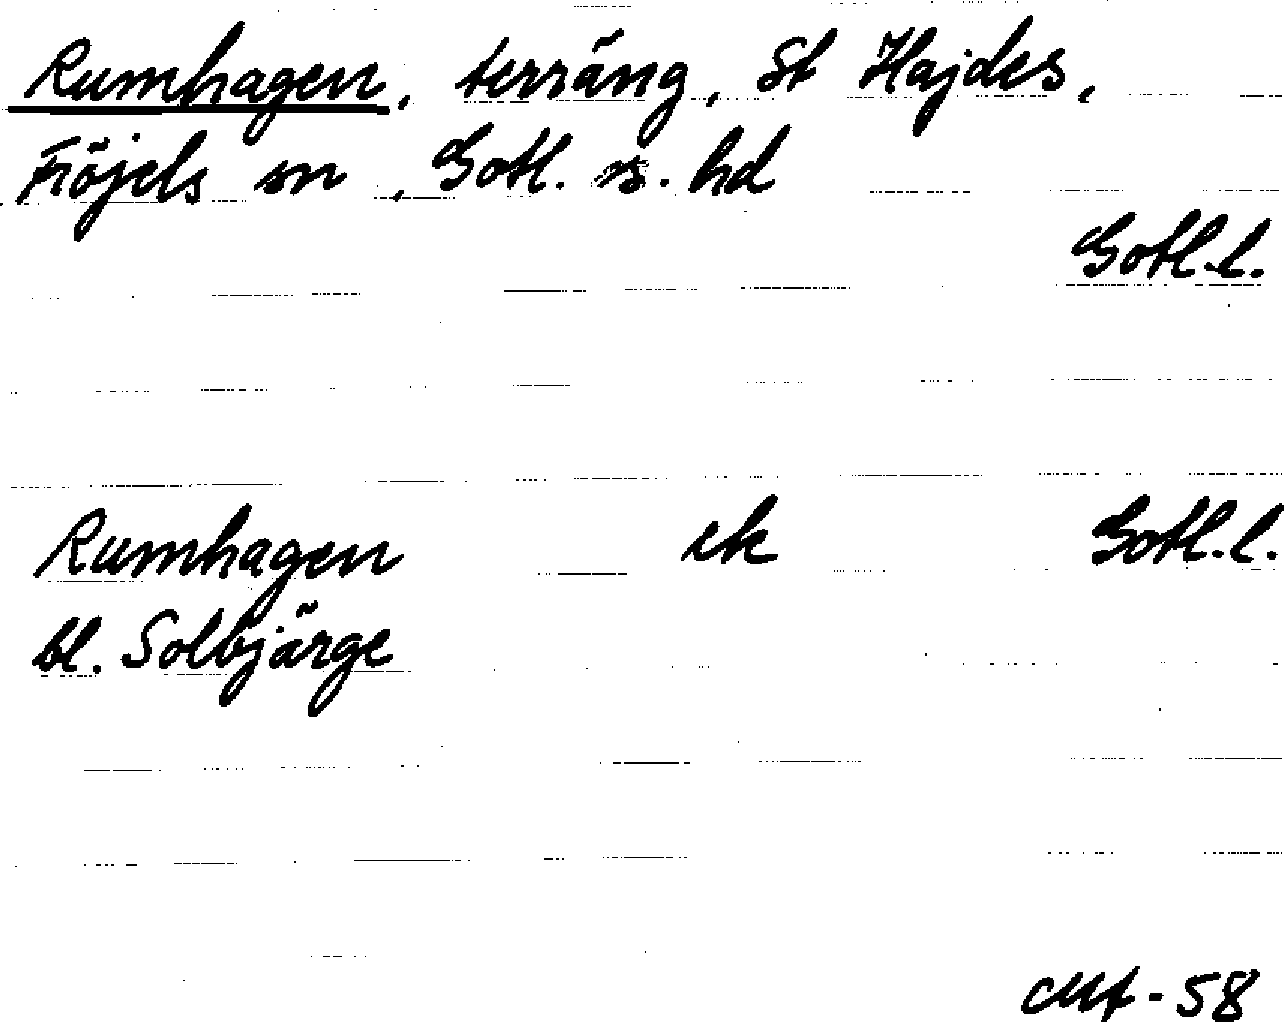 Rumhagen, terräng, St Hajdes,
Fröjels sn, Gotl. s. hd
Gotl.l.
Rumhagen ek Gotl.l.
bl. Solbjärge
-58